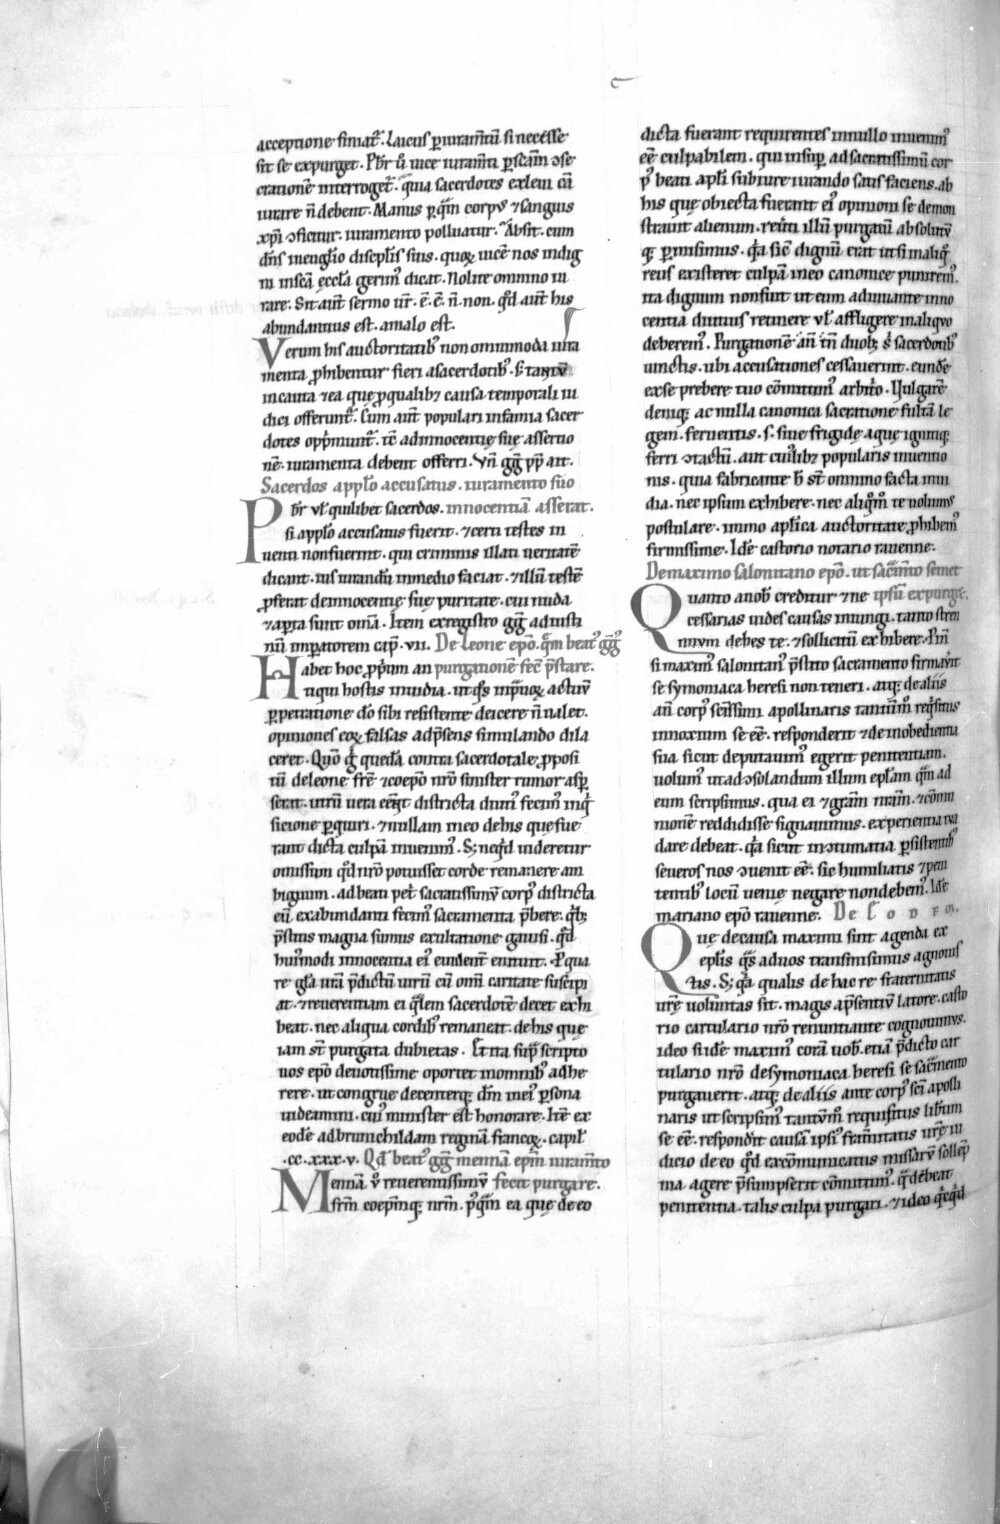 acceptione finiat᷒. Laicus p̱ iuram̅tu̅ si necesse
sit se expurget. Pb̅r ṽ uice iuram̅ti p̱ sc̅am ↄse
cratione̅ interroget᷒. quia sacerdotes ex leui ca̅
iurare n̅ debent. Manus p̱ q̅m corpus ⁊ sanguis
xp̅i ↄficitur. iuramento polluatur. Absit. cum
dn̅s in eug̅lio discipl̅is suis. quoꝝ uice̅ nos indig
ni in sc̅a eccl̅a gerim᷒ dicat. Nolite omnino iu
rare. Sit aut̅ sermo ur̅. e̅. e̅. n̅. non. qd̅ aut̅ his
abundantius est. a malo est.
Verum his auctoritatib᷒ non omnimoda iura
menta ꝓhibentur fieri a sacerdotib᷒. s; tantu̅
incauta ⁊ ea que p̱ qualib; causa temporali iu
dici offerunt᷒. Cum aut̅ populari infamia sacer
dotes opp̅munt᷒. tc̅ ad innocentie̜ sue̜ assertio
ne̅. iuramenta debent offerri. Vn̅ gg̅ pp̅ ait.
Sacerdos app̅lo accusatus. iuramento suo
Pb̅r ul̅ quilibet sacerdos. innocentia̅ asserat.
si a pp̅lo accusatus fuerit. ⁊ certi testes in
uenti non fuerint. qui criminis illati ueritate̅
dicant. ius iurandu̅ in medio faciat. ⁊ illu̅ teste̅
ꝓferat de innocentie̜ sue̜ puritate. cui nuda
⁊ ap̱ta sunt om̅ia. Item ex registro gg̅ ad iusti
nu̅ imp̱atorem cap̅. vii. De Leone ep̅o. q̅m beat᷒ gg̅᷒
Habet hoc ꝓp̅um an purgatione̅ fec̅ p̅stare.
tiqui hostis inuidia. ut q᷒s in p̅uoꝝ actuu̅
p̱petratione do̅ sibi resistente deicere n̅ ualet.
opiniones eoꝝ falsas ad p̅sens simulando dila
ceret. Quo̅ g̅ queda̅ contra sacerdotale ꝓposi
tu̅ de leone fr̅e ⁊ coep̅o nr̅o sinister rumor asp̱
serat. utru̅ uera ee̅nt districta diuti᷒ fecim᷒ inq᷒
sitione p̱quiri. ⁊ nullam in eo de his que fue
rant dicta culpa̅ inuenim᷒. S; ne q᷒d uideretur
omissum qd̅ nr̅o potuisset corde remanere am
biguum. ad beati pet᷒ sacratissimu̅ corp᷒ districta
eu̅ ex abundanti fecim᷒ sacramenta p̅bere. q᷒b;
p̅stitis magna sumus exultatione gauisi. qd̅
hui᷒modi innocentia ei᷒ euident᷒ enituit. P qua
re gl̅a ur̅a p̅dictu̅ uiru̅ cu̅ om̅i caritate suscipi
at. ⁊ reuerentiam ei q᷒lem sacerdote̅ decet exhi
beat. nec aliqua cordib᷒ remaneat. de his que
iam st̅ purgata dubietas. Et ita sup̱ scripto
uos ep̅o deuotissime oportet in omnib᷒ adhe
rere. ut congrue decenterq; dm̅ in ei᷒ p̱sona
uideamini. cui᷒ minister est honorare. Ite̅ ex
eode̅ ad brunichildam regina̅ francoꝝ. capit᷒
.cc.xxx.v. Qd̅ beat᷒ gg̅ menna̅ ep̅m iuram̅to
Menna̅ ṽ reuerentissimu̅ fecit purgare.
fr̅m coep̅mq; nr̅m. p᷒q̅m ea que de eo
dicta fuerant requirentes in nullo inuenim᷒
ee̅ culpabilem. qui insup̱ ad sacratissimu̅ cor
p᷒ beati ap̅li sub iure iurando satis faciens. ab
his que̜ obiecta fuerant ei᷒ opinioni se demon
strauit alienum. reu̅ti illu̅ purgatu̅ absolutu̅
q; p̱misimus. q᷒a sic̅ dignu̅ erat ut si in aliq᷒
reus existeret culpa̅ in eo canonice puniremꝰ.
ita dignum non fuit ut eum adiuuante inno
centia diutius retinere ul̅ affligere in aliquo
deberem᷒. Purgatione̅ an̅ tn̅ duob; s᷒ sacerdotib᷒
iunctis. ubi accusationes cessauerint. eunde̅
ex se prebere tuo co̅mittim᷒ arbit᷒o. Uulgare̅
deniq; ac nulla canonica sacratione fulta̅ le
gem. feruentis. s. siue frigide̜ aque̜ ignitiq;
ferri ↄtactu̅. aut cui᷒lib; popularis inuentio
nis. quia fabricante h᷒ st̅ omnino facta inui
dia. nec ipsum exhibere. nec aliq᷒m te uolum᷒
postulare. immo ap̅lica auctoritate ꝓhibem᷒
firmissime. Ide̅ castorio notario rauenne.
De maximo salonitano ep̅o. ut sac̅m̅to semet
Quanto a nob᷒ creditur ⁊ ne ipsu̅ expurget.
cessarias uides causas iniungi. tanto stren
nuum debes te. ⁊ sollicitu̅ exhibere. P in̅
si maxim᷒ salonitan᷒ p̅stito sacramento firmau̅it
se symoniaca heresi non teneri. atq; de aliis
an̅ corp᷒ sc̅issimi apollinaris tantum᷒ req᷒situs
innoxium se ee̅. responderit ⁊ de inobedientia
sua sicut deputauim᷒ egerit penitentiam.
uolum᷒ ut ad ↄsolandum illum ep̅lam q̅m ad
eum scripsimus. qua ei ⁊ gr̅am nr̅am. ⁊ co̅mu
nione̅ reddidisse signauimus. experientia tua
dare debeat. q᷒a sicut in ↄtumatia p̱sistentib᷒
seueros nos ↄuenit ee̅. sic humiliatis ⁊ peni
tentib᷒ locu̅ uenie̜ negare non debem᷒. Ide̅
mariano ep̅o rauenne.
Que̜ de causa maximi sint agenda ex
ep̅lis q᷒s ad uos transmisimus agnouis
tis. S; q᷒a qualis de hac re fraternitatis
ur̅e̜ uoluntas sit. magis a p̅sentiu̅ latore. casto
rio cartulario nr̅o renuntiante cognouimus.
ideo si ide̅ maxim᷒ cora̅ uob᷒. etia̅ p̅dicto car
tulario nr̅o de symoniaca heresi se sac̅m̅ento
purgauerit. atq; de aliis ante corp᷒ sc̅i apolli
naris ut scripsim᷒ tantum᷒ requisitus lib᷒um
se ee̅. respond᷒it causa̅ ipsi᷒ frat̅nitatis ur̅e̜ iu
dicio de eo qd̅ exco̅municatus missaru̅ sollep̅
nia agere p̅sumpserit co̅mittim᷒. q᷒ debeat
penitentia. talis culpa purgari. ⁊ ideo q᷒cq᷒d